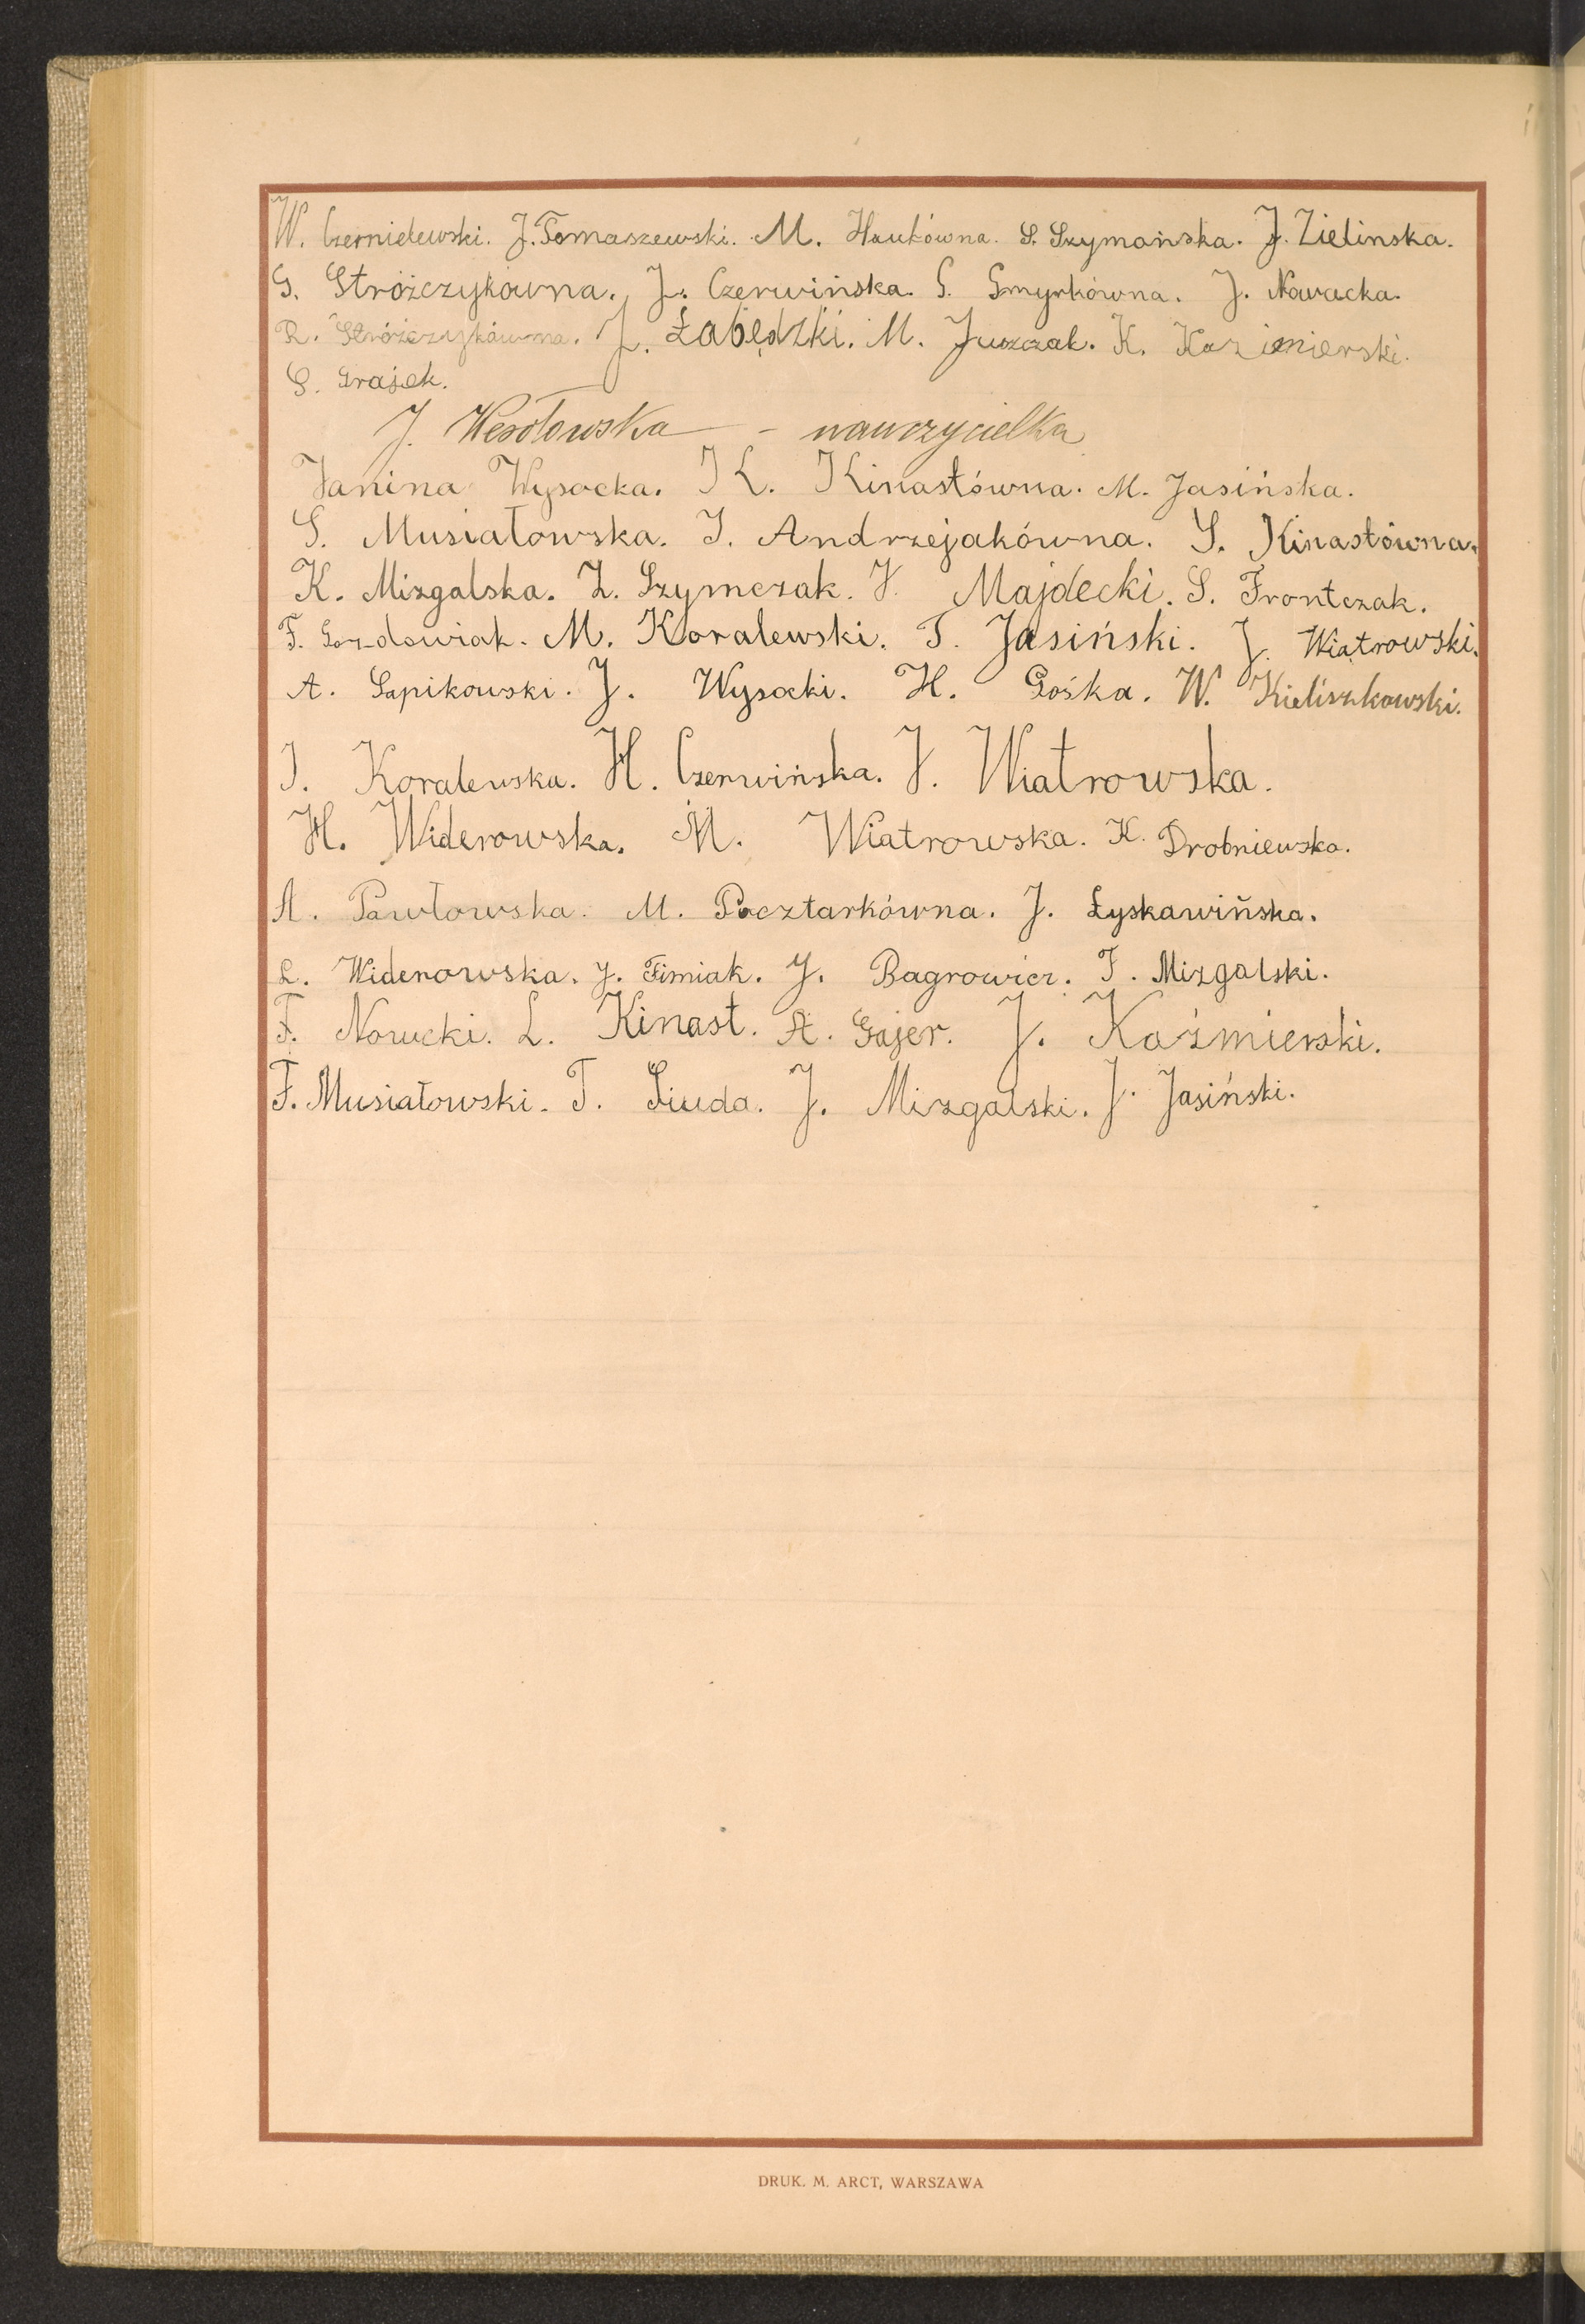 W. Czernielewski. J. Tomaszewski. M. Haukówna. S. Szymańska. J. Zielinska.
G. Stróżczykówna. J. Czerwińska. G. Smyrkówna. J. Nowacka.
R. Stróżczykówna. J. Łabędzki. M. Juszczak. K. Kazimierski.
S. Grajek.
J. Wesołowska - nauczycielka
Janina Wysocka. K. Kinastówna. M. Jasińska.
S. Musiałowska. I. Andrzejakówna. S. Kinastówna.
K. Mizgalska. Z. Szymczak. J. Majdecki. S. Frontczak.
F. Gozdowiak. M. Koralewski. T. Jasiński. J. Wiatrowski.
A. Sapikowski. J. Wysocki. H. Gośka. W. Kieliszkowski.
I. Koralewska. H. Czerwińska. J. Wiatrowska.
H. Widerowska. M. Wiatrowska. K. Drobniewska.
A. Pawłowska. M. Pocztarkówna. J. Łyskawińska.
L. Widerowska. J. Fimiak. J. Bagrowicz. T. Mizgalski.
F. Nowicki. L. Kinast. A. Gajer. J. Kaźmierski.
F. Musiałowski. T. Siuda. J. Mizgalski. J. Jasiński.
DRUK. M. ARCT, WARSZAWA